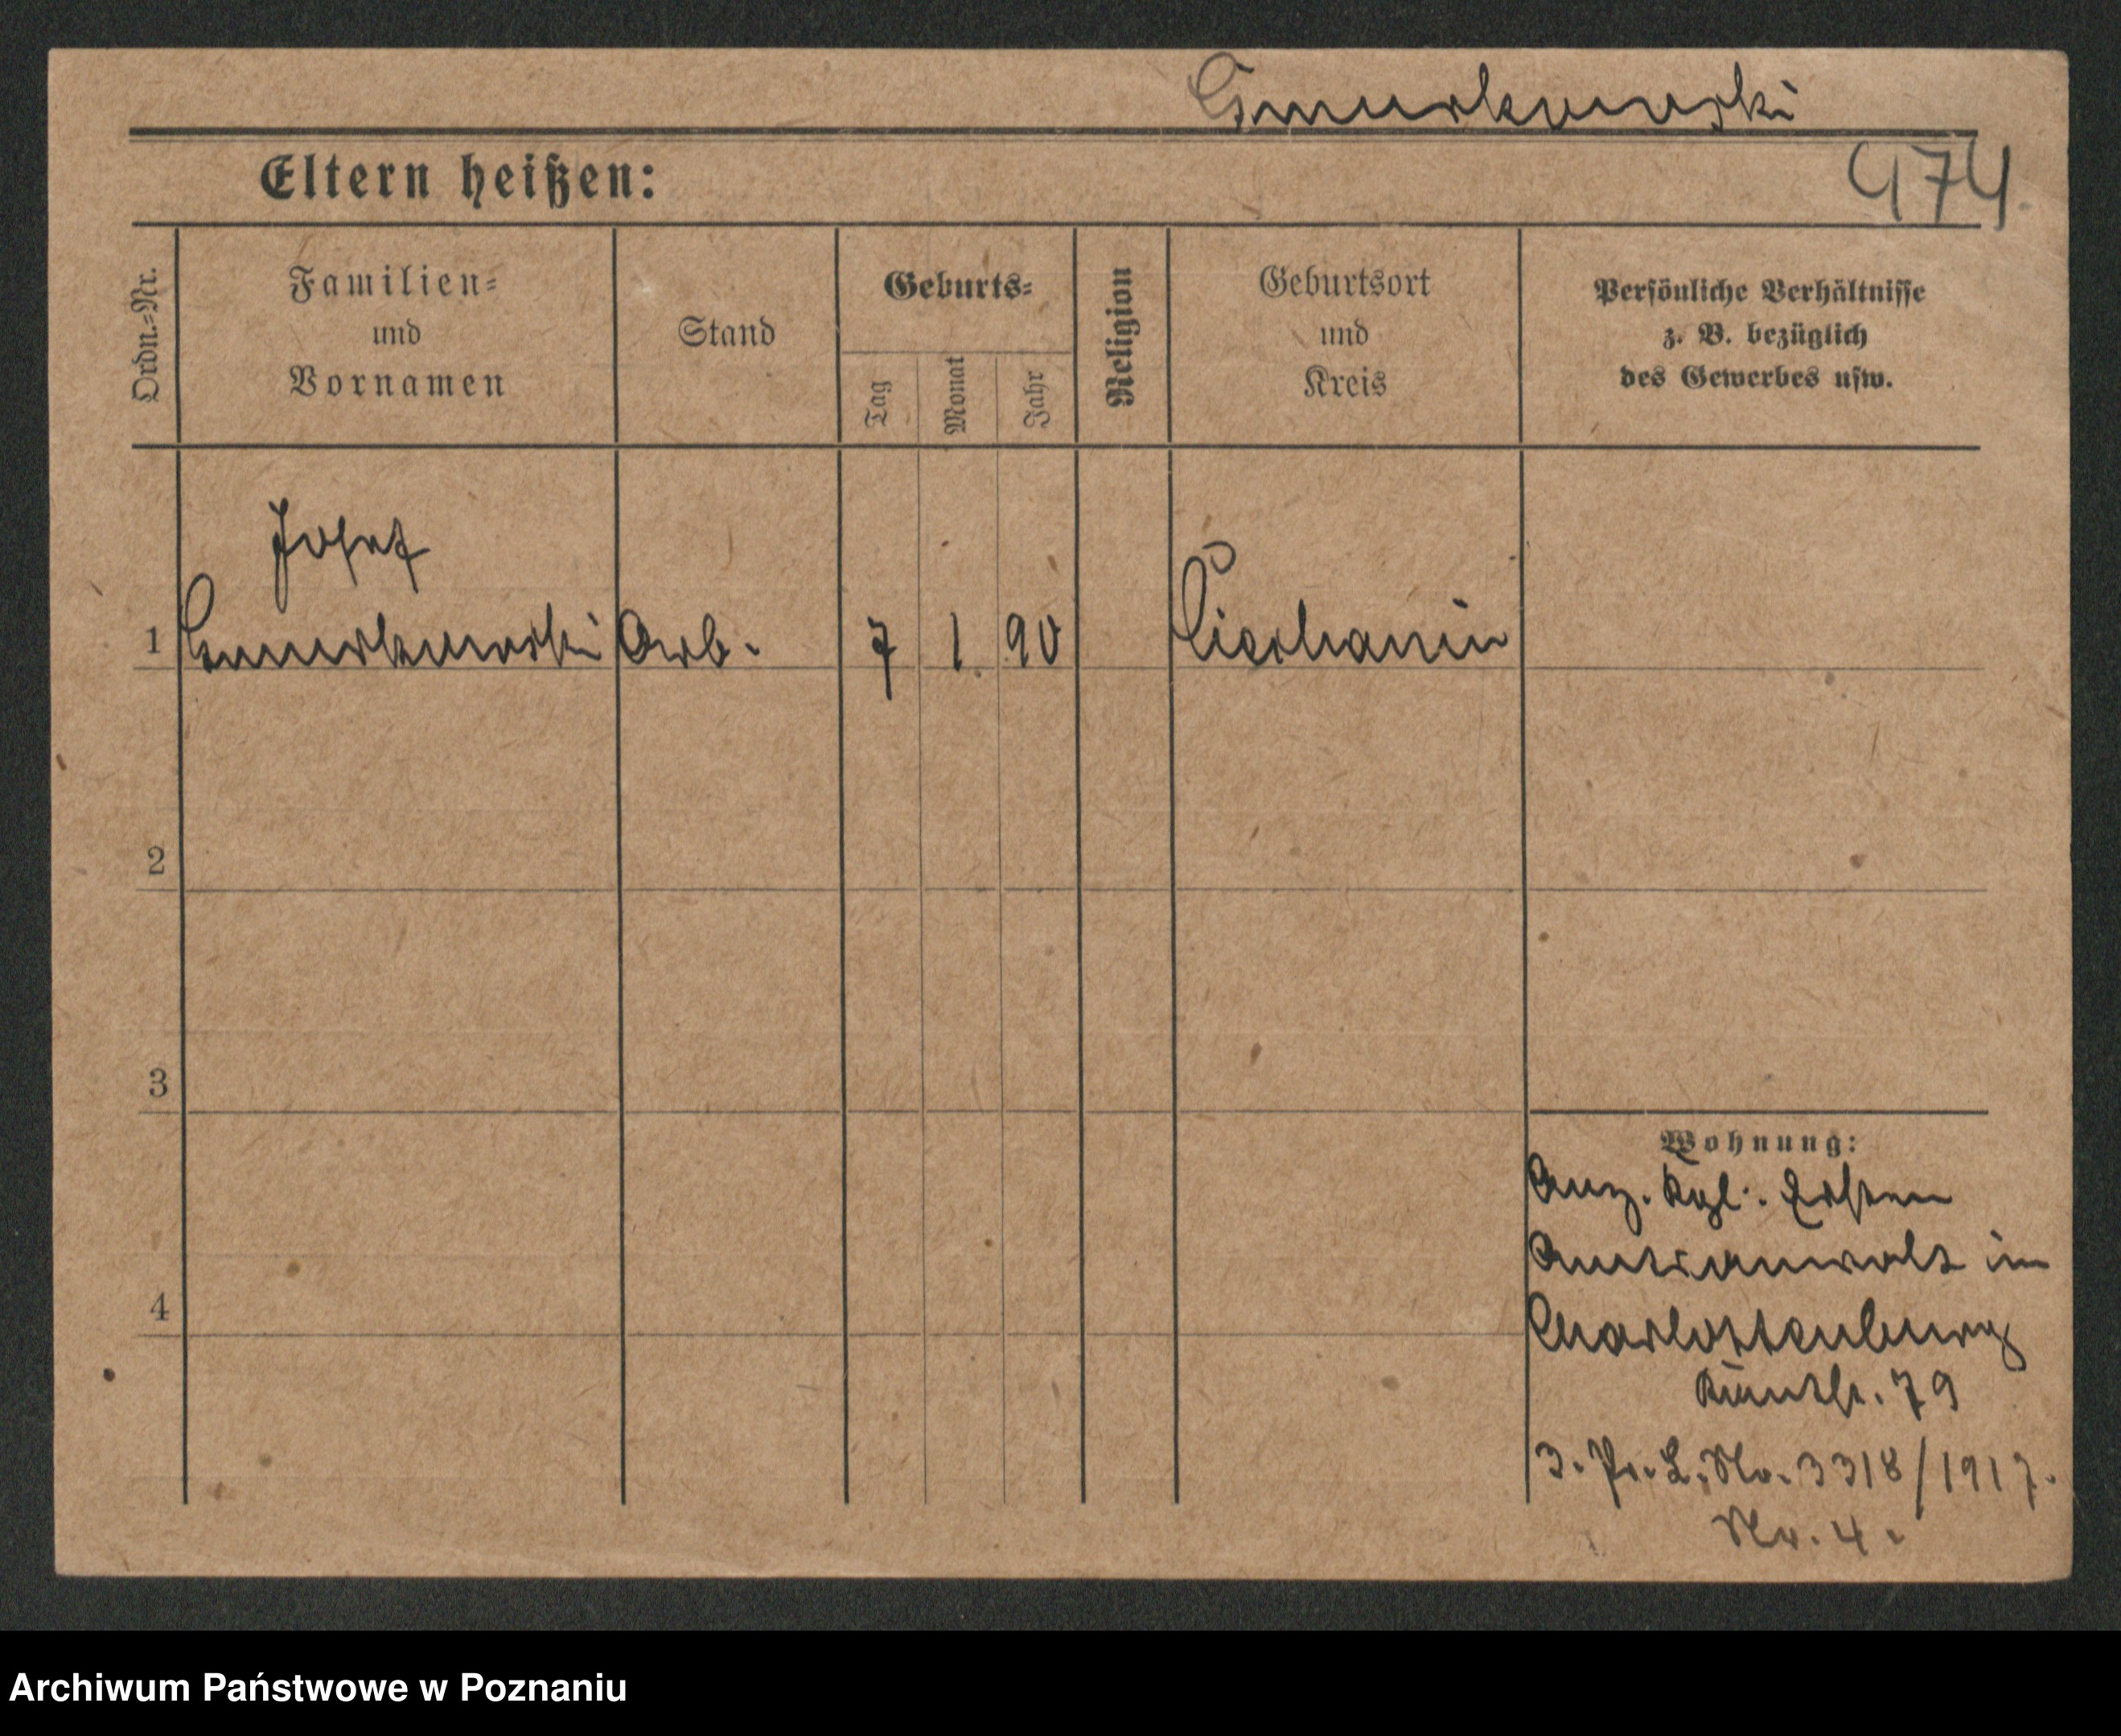 Gmurkowski
Eltern heißen:
474.
Ordn.=Nr.
Familien=
und
Vornamen
Stand
Geburts=
Tag
Monat
Jahr
Religion
Geburtsort
und
Kreis
Persönliche Verhältnisse
z. B. bezüglich
des Gewerbes usw.
Josef
1 Gmurkowski Arb. 7 1. 90
2
3
4
Wohnung:
Anz. Kgl. Ersten
Amtsanwalt in
Charlottenburg
Kantstr. 79
3. Pr. L. No. 3318/1917.
No. 4.
Archiwum Państwowe w Poznaniu